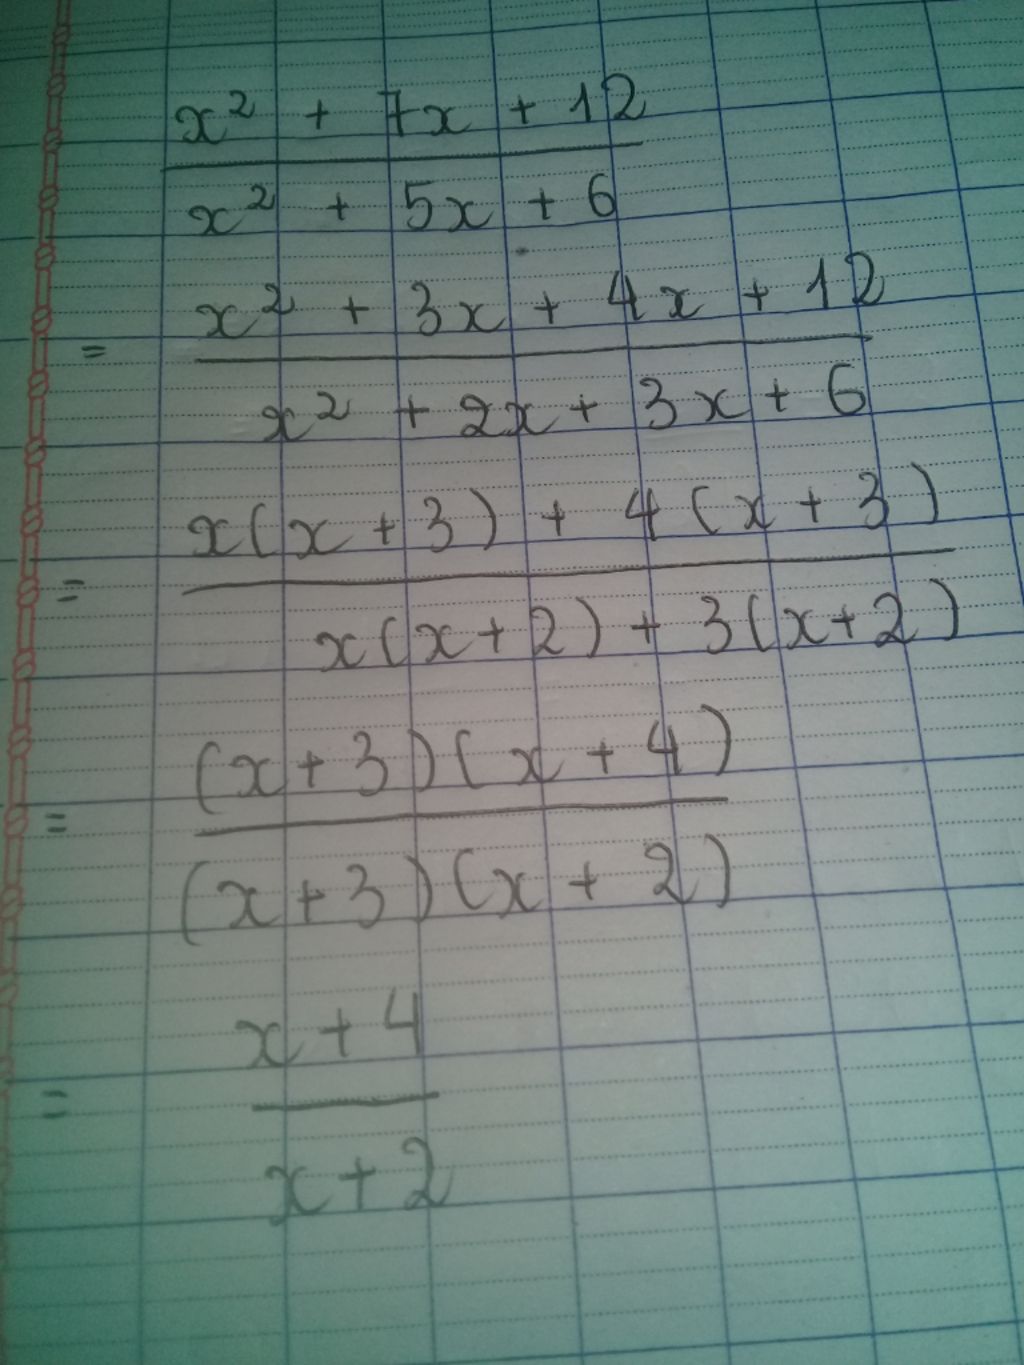 x² + 7x + 12
x² + 5x + 6
= x² + 3x + 4x + 12
x² + 2x + 3x + 6
= x(x + 3) + 4(x + 3)
x(x + 2) + 3(x + 2)
= (x + 3)(x + 4)
(x + 3)(x + 2)
= x + 4
x + 2